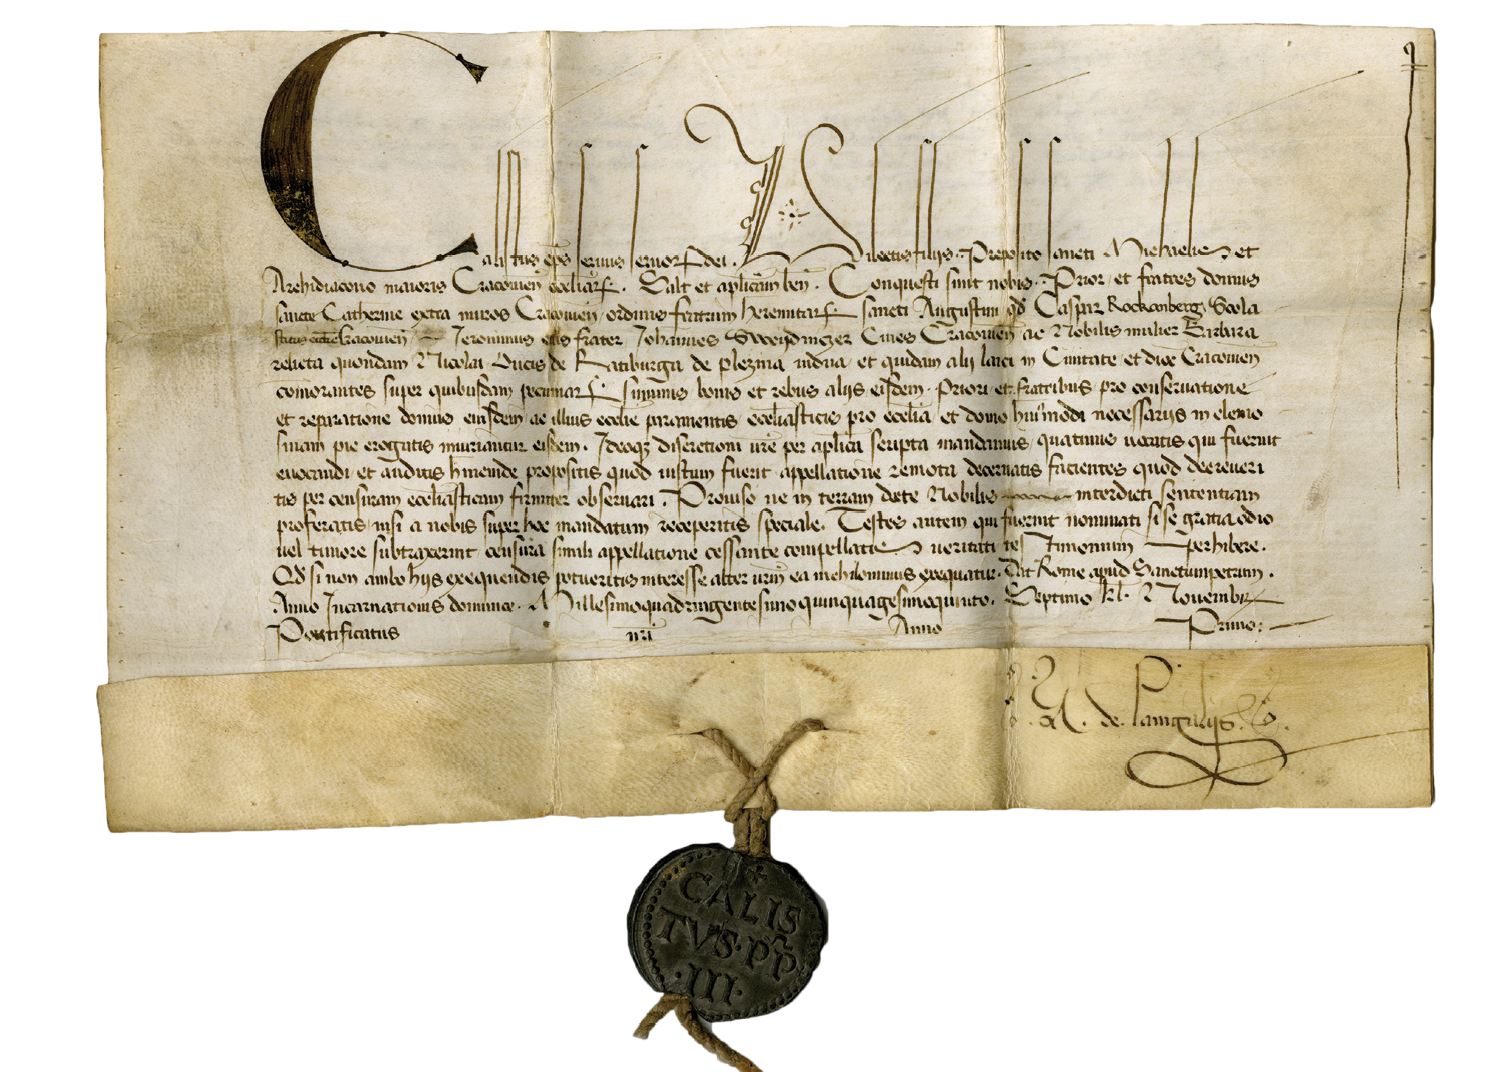 Calistus ep̄s seruus seruorꝝ dei. Dilectis filijs. Preposito sancti Michaelis et
Archidiacono maioris Cracouien̄ eccliarꝝ. Salt et aplicam ben̄. Conquesti sunt nobis. Prior et fratres domus
sancte Catherine extra muros Cracouien̄ ordinis fratrum heremitarꝝ sancti Augustini qd̄ Caspar Rockenberg Scola
sticus Cracouien̄ Ieronimus eius frater Johannes Sweidniczer Ciues Cracouien̄ ac Nobilis mulier Barbara
relicta quondam Nicolai Ducis de Ratiburga de plezina uidua et quidam alij laici in Ciuitate et dioc Cracouien̄
comorantes super quibusdam pecuniarꝝ sum̄mis bonis et rebus alijs eisdem. Priori et fratribus pro conseruatione
et reparatione domus eiusdem ac illius ecclie paramentis ecclīasticis pro ecclīa et domo hui'modi necessarijs in elemo
sinam pie erogatis iniuriantur eisdem. Ideoqꝫ discretioni ur̄e per aplica scripta mandamus quatinus uocatis qui fuerint
euocandi et auditis hincinde propositis quod iustum fuerit appellatione remota decernatis facientes quod decreueri
tis per censuram ecclīasticam firmiter obseruari. Prouiso ne in terram dicte Nobilis interdicti sententiam
proferatis nisi a nobis super hoc mandatum receperitis speciale. Testes autem qui fuerint nominati si se gratia odio
uel timore subtraxerint censura simili appellatione cessante compellatis ueritati testimonium perhibere.
Qd̄ si non ambo hijs exequendis potueritis interesse alter ur̄m ea nichilominus exequatur. Dat Rome apud Sanctumpetrum.
Anno Incarnationis dominice. Millesimoquadringentesimoquinquagesimoquinto. Septimo kl. Nouembr
Pontificatus nr̄i Anno Primo:
A. de Pamgulijs
CALIS
TVS·PP
·III·